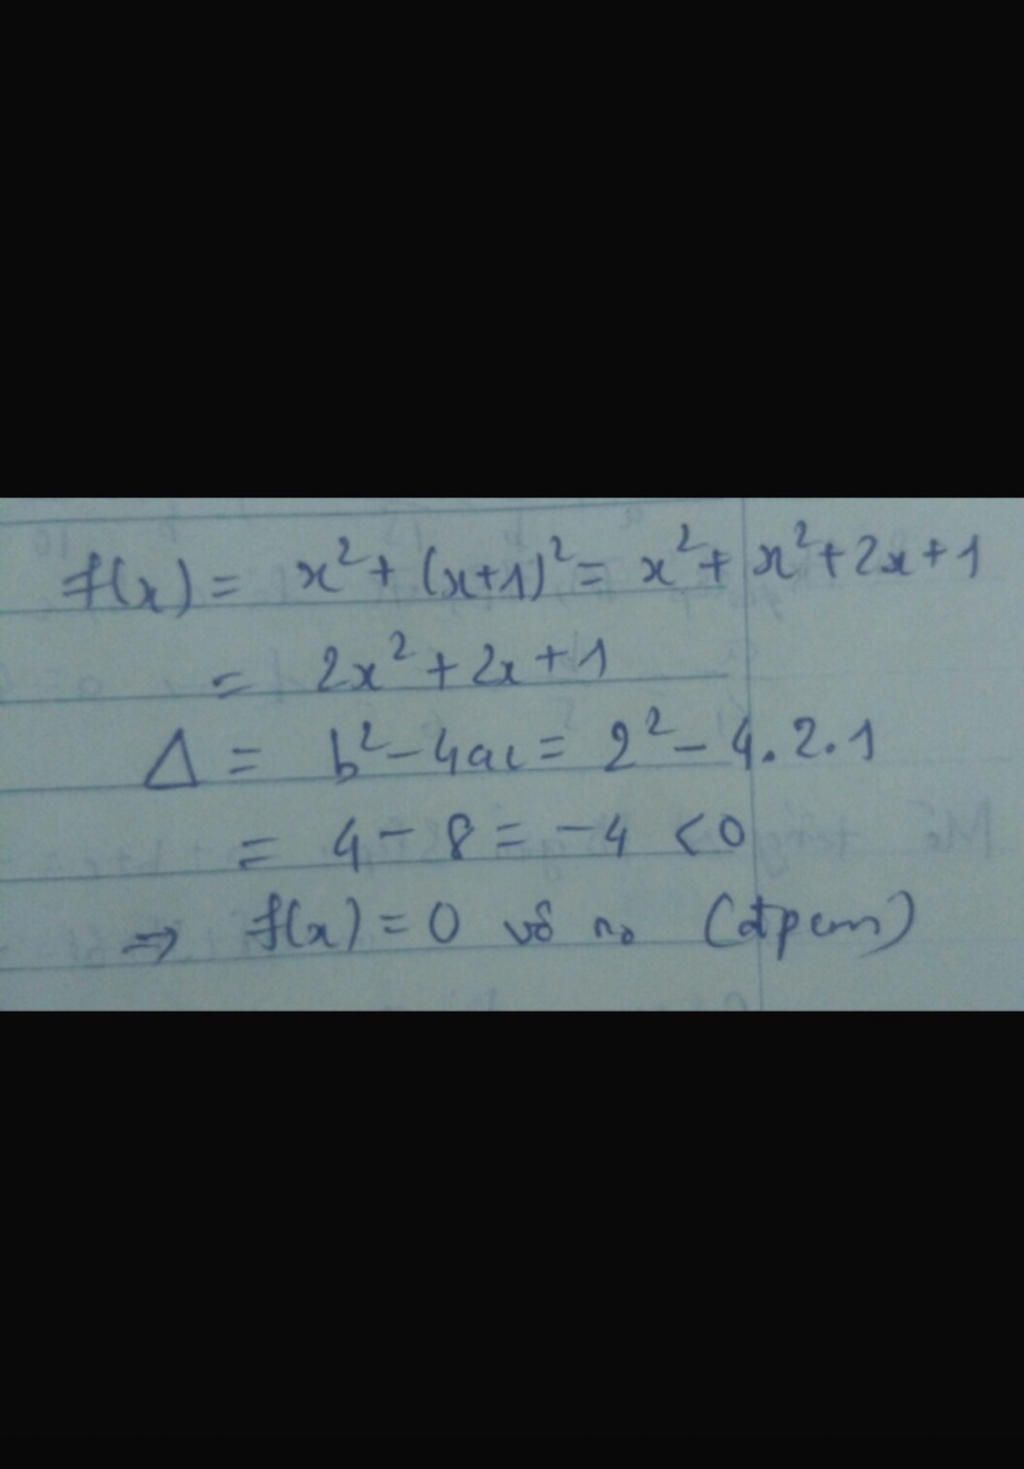 f(x) = x² + (x+1)² = x² + x² + 2x + 1
= 2x² + 2x + 1
Δ = b² - 4ac = 2² - 4.2.1
= 4 - 8 = -4 < 0
⇒ f(x) = 0 vô no (đpcm)